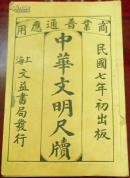 商業普通應用
民國七年初出板
中華文明尺牘
上海文益書局發行